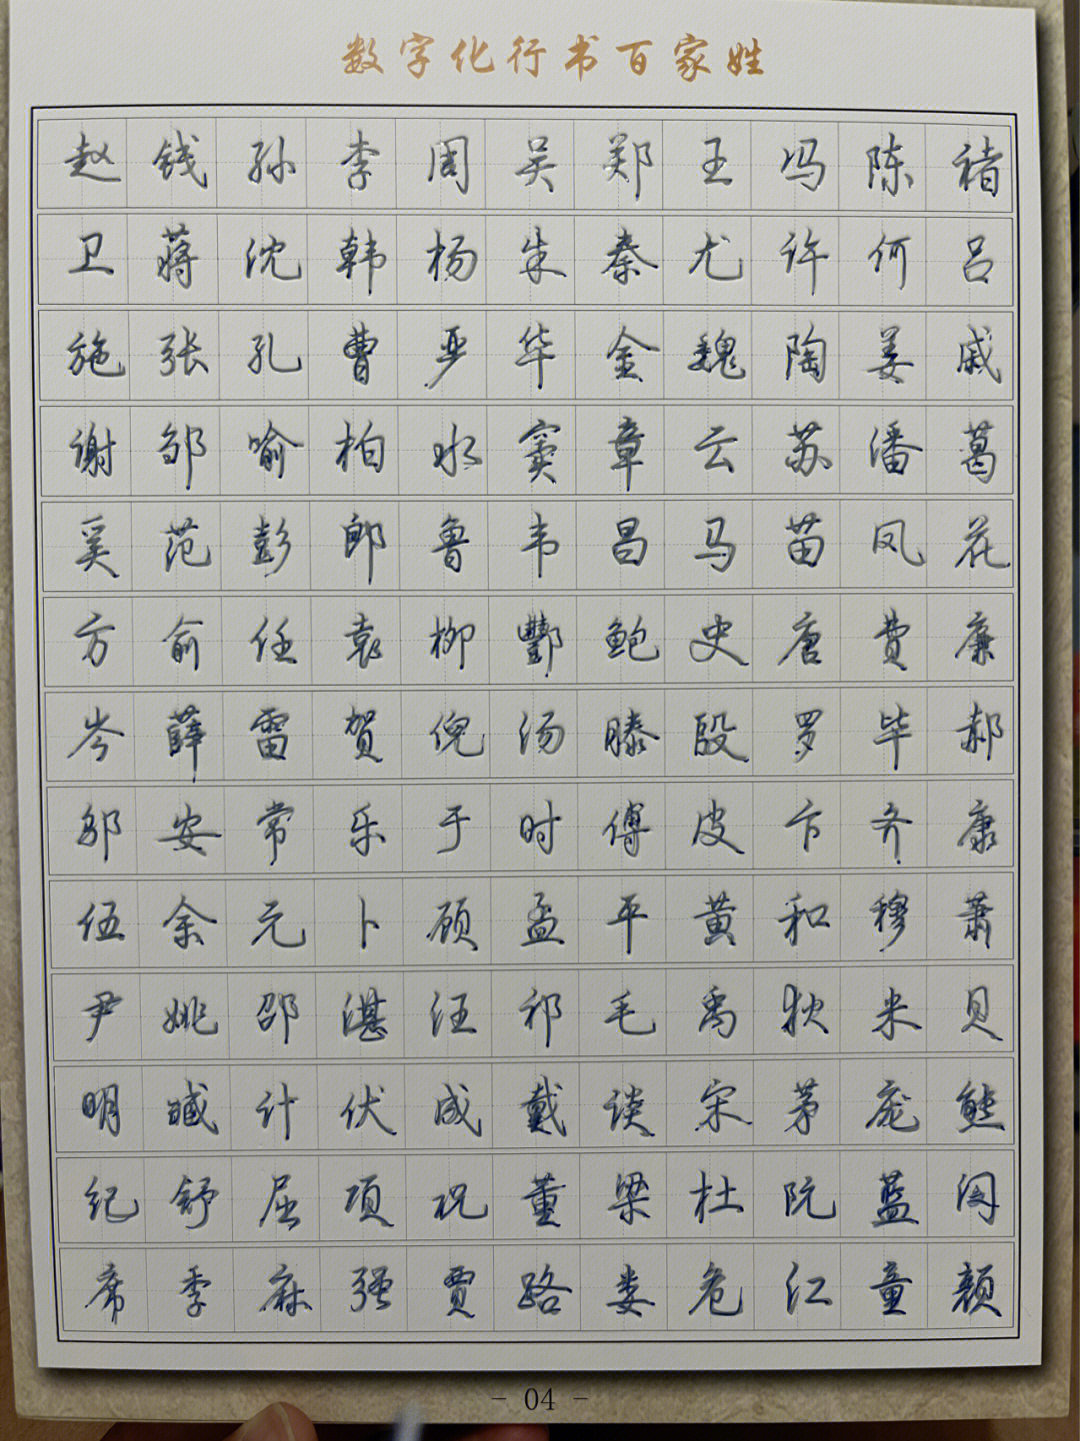 数字化行书百家姓
赵钱孙李周吴郑王冯陈褚
卫蒋沈韩杨朱秦尤许何吕
施张孔曹严华金魏陶姜戚
谢邹喻柏水窦章云苏潘葛
奚范彭郎鲁韦昌马苗凤花
方俞任袁柳酆鲍史唐费廉
岑薛雷贺倪汤滕殷罗毕郝
邬安常乐于时傅皮卞齐康
伍余元卜顾孟平黄和穆萧
尹姚邵湛汪祁毛禹狄米贝
明臧计伏成戴谈宋茅庞熊
纪舒屈项祝董梁杜阮蓝闵
席季麻强贾路娄危江童颜
- 04 -